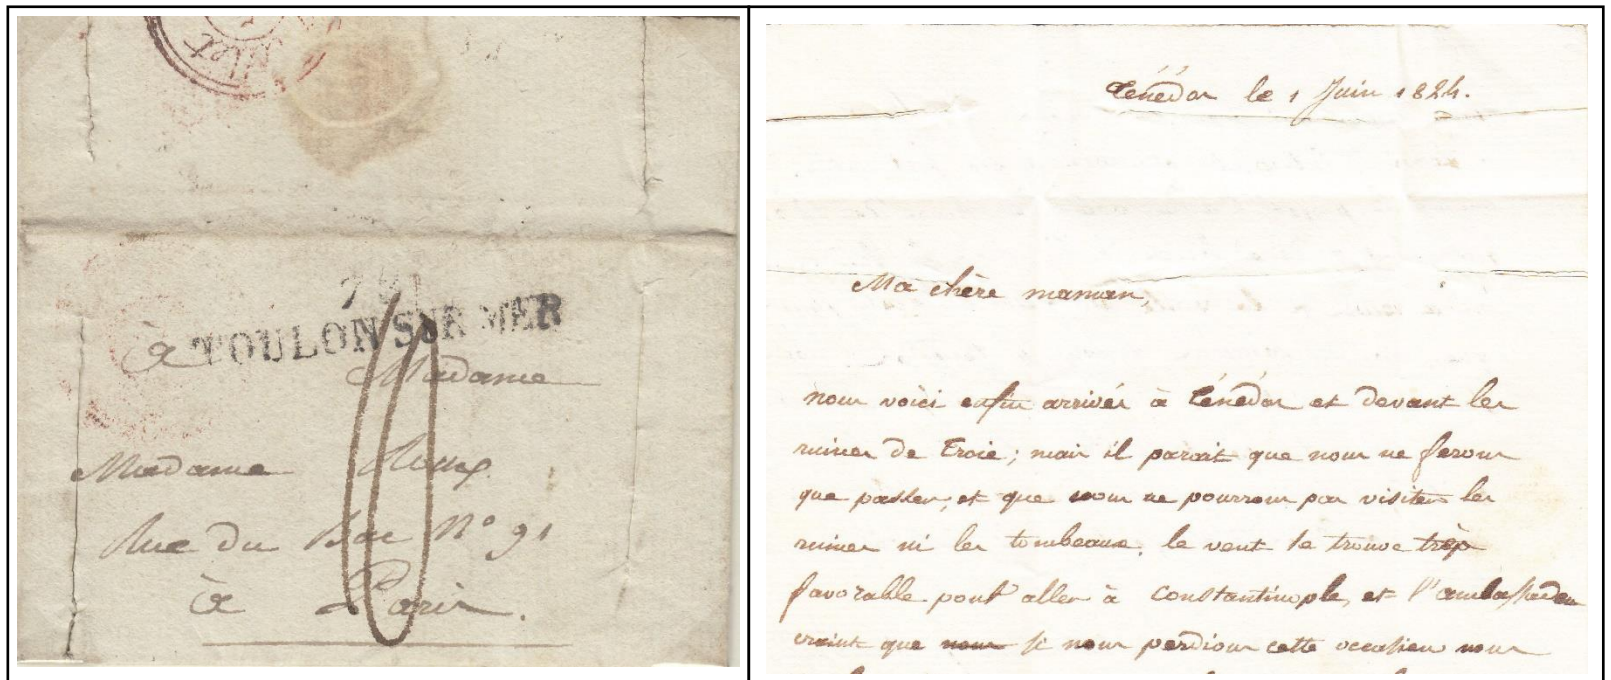 79
TOULON SUR MER
à
Madame
Madame Roux
Rue du Bac N° 91
à Paris.
Ténédos le 1 Juin 1824.
Ma chère maman,
nous voici enfin arrivés à Ténédos et devant les
ruines de Troie; mais il parait que nous ne ferons
que passer, et que nous ne pourrons pas visiter les
ruines ni les tombeaux. le vent se trouve très
favorable pour aller à Constantinople, et l'ambassadeur
craint que nous si nous perdions cette occasion nous